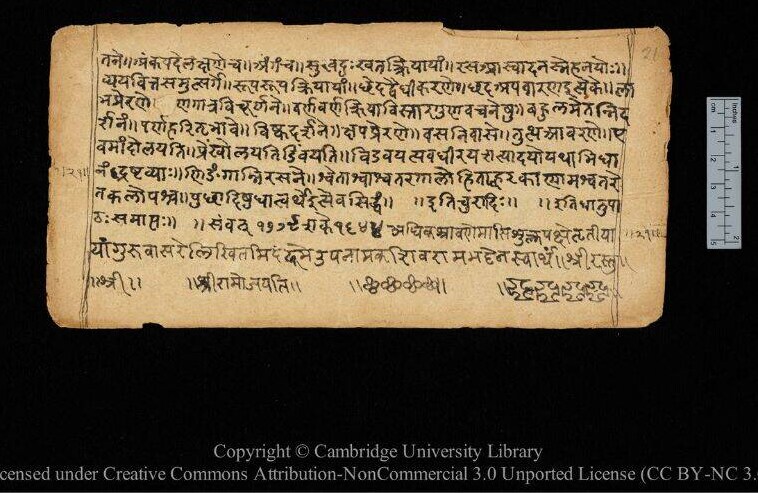 तने॥ अंक पदे लक्षणे च॥ अंग च॥ सुख दुःख तत्क्रियायां॥ रस आस्वादनस्नेहनयोः॥
व्यय वित्तसमुत्सर्गे॥ रूप रूपक्रियायां॥ छेद द्वैधीकरणे॥ छद अपवारण इत्येके॥ ला
भ प्रेरणे गात्रविचूर्णने॥ वर्ण वर्णक्रियाविस्तारगुणवचनेषु॥ बहुलमेतन्निद
र्शनं॥ पर्ण हरितभावे॥ विष्क दर्शने॥ क्षप प्रेरणे॥ वस निवासे॥ तुत्थ आवरणे॥ ए
वमांदोलयति॥ प्रेंखोलयति विडंबयति॥ अवधीरय इत्यादयो यथाभिधा
नं द्रष्टव्याः॥ णिङंगान्निरसने॥ श्वेताश्वाश्वतरगालोडिताह्वरकाणामश्वतरे
तकलोपश्च॥ पुच्छादिषु धात्वर्थे इत्येव सिद्धं॥ इति चुरादिः॥ इति धातुपा
ठः समाप्तः॥ संवत् १७७९ शके १६४४ अधिकश्रावणे मासि शुक्लपक्षे तृतीया
यां गुरुवासरे लिखितमिदं उपनामकशिवरामभट्टेन स्वार्थं॥ श्रीरस्तु॥
॥श्री॥ ॥श्रीरामो जयति॥
21
Inches
cm
Copyright © Cambridge University Library
icensed under Creative Commons Attribution-NonCommercial 3.0 Unported License (CC BY-NC 3.